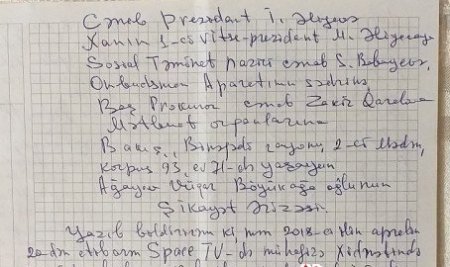 Cənab Prezident İ. Əliyevə
Xanım 1-ci Vitse-prezident M. Əliyevaya
Sosial Təminat Naziri cənab S. Babayevə,
Ombudsman Aparatının sədrinə,
Baş Prokuror cənab Zakir Qaralova
Mətbuat orqanlarına
Bakı ş., Binəqədi rayonu, 2-ci Mədm,
Korpus 93, ev 71-də yaşayan
Ağayev Vüqar Böyükağa oğlunun
Şikayət Ərizəsi.
Yazıb bildirirəm ki, mən 2018-ci ilin aprelin
20-dən etibarən Space TV-də mühafizə xidmətində